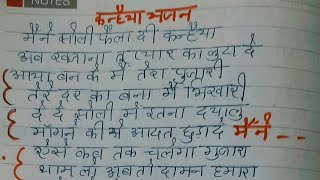 NOTES
कन्हैया भजन
मैंने झोली फैला दी कन्हैया
अब खजाना तू प्यार का लुटा दे
आया बन के मैं तेरा पुजारी
तेरे दर का बना मैं भिखारी
दे दे झोली में इतना दयालु
मांगने की ये आदत छुड़ा दे मैंने ---
ऐसे कब तक चलेगा गुजारा
थाम लो अब तो दामन हमारा